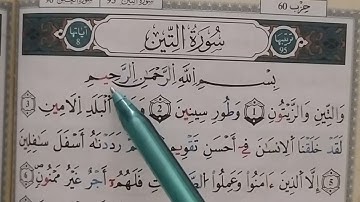 حزب 60
ترتيبها 95
سُورَةُ التِّينِ
آياتها 8
بِسْمِ اللَّهِ الرَّحْمَٰنِ الرَّحِيمِ
وَالتِّينِ وَالزَّيْتُونِ 1 وَطُورِ سِينِينَ 2 الْبَلَدِ الْأَمِينِ 3
لَقَدْ خَلَقْنَا الْإِنسَانَ فِي أَحْسَنِ تَقْوِيمٍ رَدَدْنَاهُ أَسْفَلَ سَافِلِينَ
5 إِلَّا الَّذِينَ آمَنُوا وَعَمِلُوا فَلَهُمْ أَجْرٌ غَيْرُ مَمْنُونٍ 6